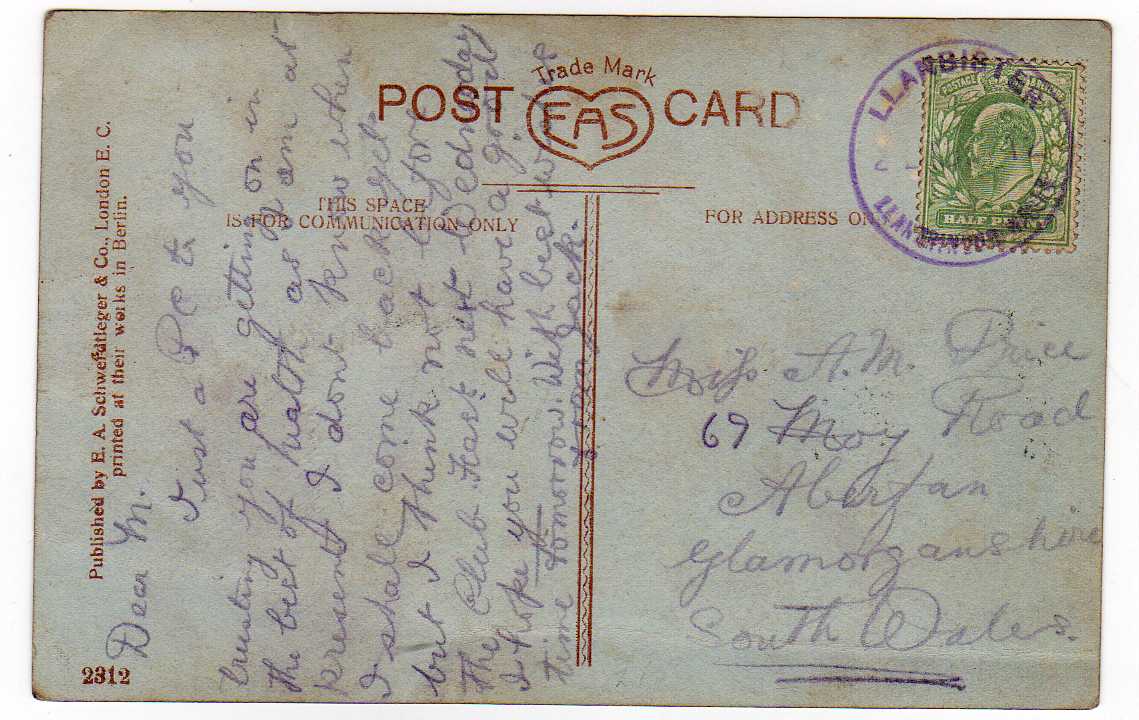 POST CARD
Trade Mark
EAS
THIS SPACE
IS FOR COMMUNICATION ONLY
FOR ADDRESS ON
LLANBISTER
LLANDRINDOD WELLS
POSTAGE
HALF PENNY
Published by E. A. Schwerdtfeger & Co., London E. C.
printed at their works in Berlin.
2312
Dear M.
Just a PC to you
trusting you are getting on in
the best of health as I am at
present I dont know when
I shall come back yet
but I think not before
the Club Feast next Wednesday
I hope you will have a good
time tomorrow. With best
from Jack.
Miss A.M. Price
69 Moy Road
Aberfan
Glamorganshire
South Wales.